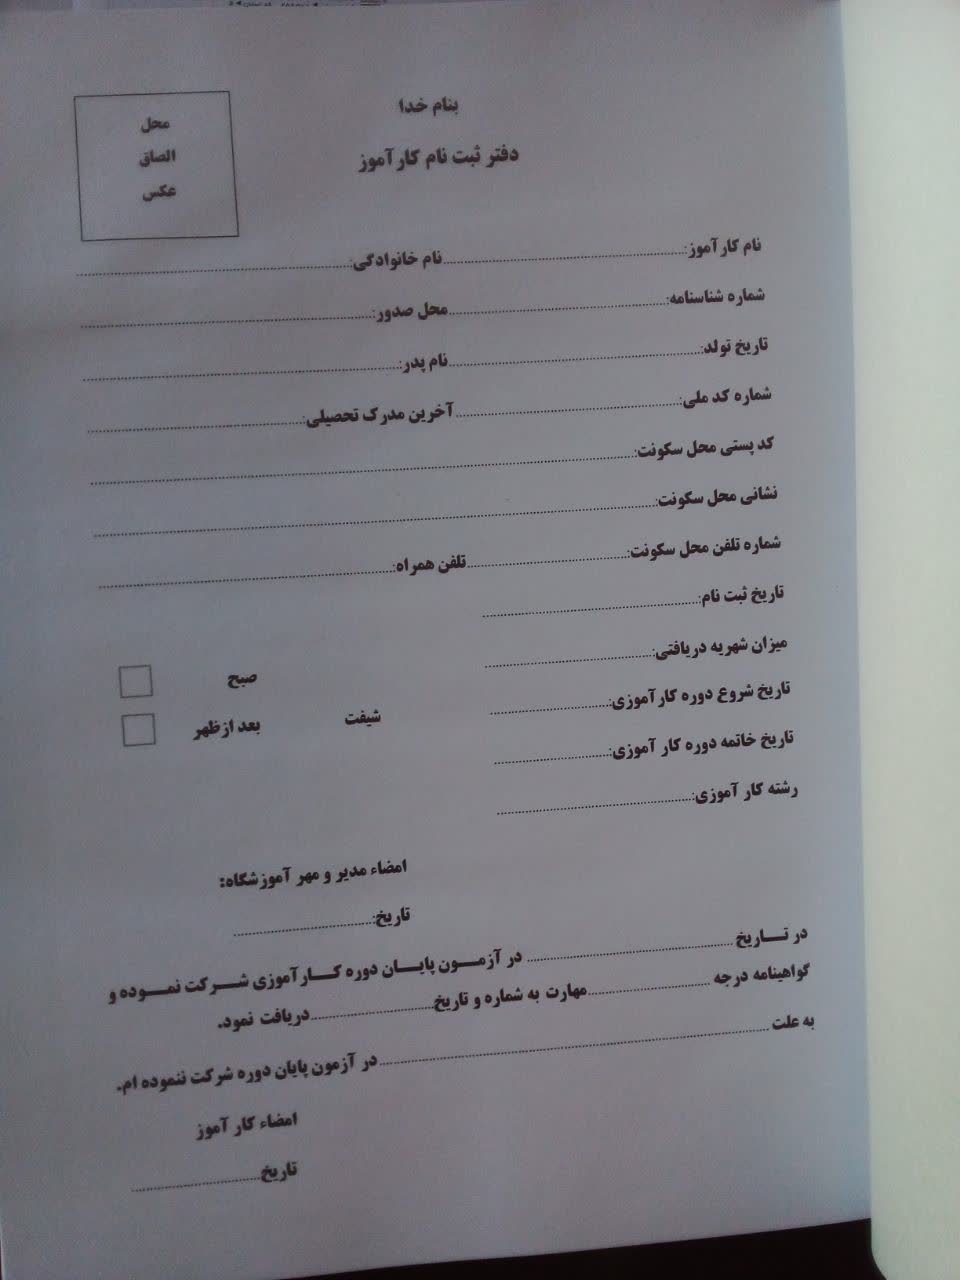 بنام خدا
محل
الصاق
عکس
دفتر ثبت نام کارآموز
نام کارآموز:..........نام خانوادگی:..........
شماره شناسنامه:..........محل صدور:..........
تاریخ تولد:..........نام پدر:..........
شماره کد ملی:..........آخرین مدرک تحصیلی:..........
کد پستی محل سکونت:..........
نشانی محل سکونت:..........
شماره تلفن محل سکونت:..........تلفن همراه:..........
تاریخ ثبت نام:..........
میزان شهریه دریافتی:..........
صبح
تاریخ شروع دوره کارآموزی:..........
شیفت
بعد ازظهر
تاریخ خاتمه دوره کار آموزی:..........
رشته کار آموزی:..........
امضاء مدیر و مهر آموزشگاه:
تاریخ:..........
در تـــاریخ .......... در آزمـــون پایـــان دوره کـــارآموزی شـــرکت نمـــوده و
گواهینامه درجه ..........مهارت به شماره و تاریخ..........دریافت نمود.
به علت ..........در آزمون پایان دوره شرکت ننموده ام.
امضاء کار آموز
تاریخ..........